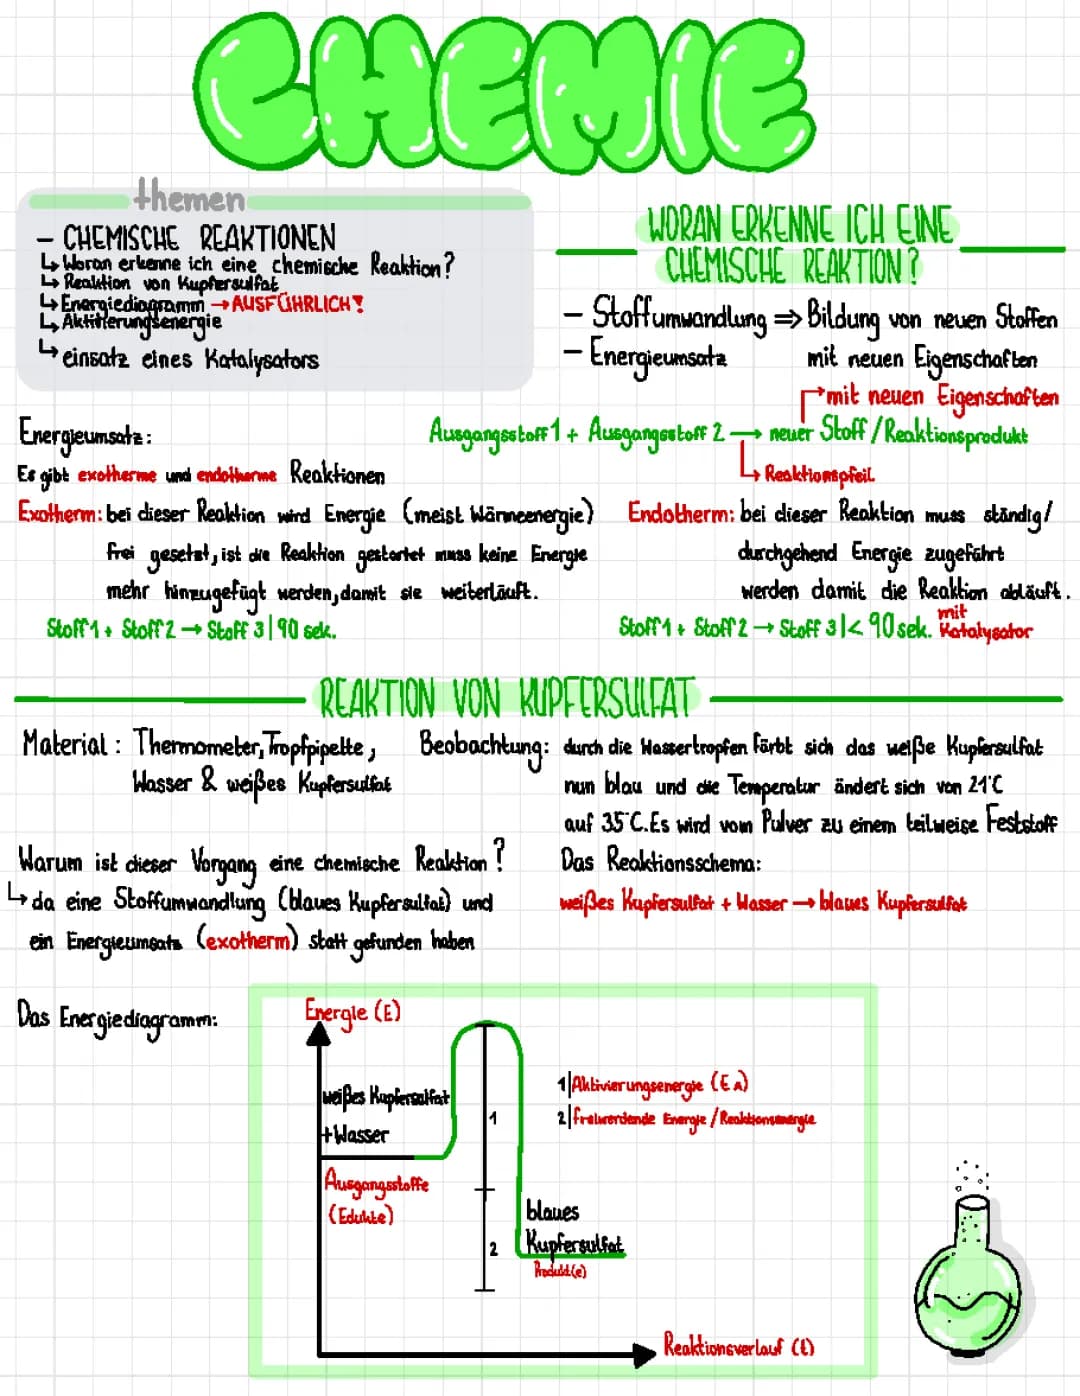 CHEMIE
themen
- CHEMISCHE REAKTIONEN
↳ Woran erkenne ich eine chemische Reaktion?
↳ Reaktion von Kupfersulfat
↳ Energiediagramm → AUSFÜHRLICH!
↳ Aktivierungsenergie
↳ einsatz eines Katalysators
WORAN ERKENNE ICH EINE
CHEMISCHE REAKTION?
- Stoffumwandlung ⇒ Bildung von neuen Stoffen
- Energieumsatz mit neuen Eigenschaften
mit neuen Eigenschaften
Ausgangsstoff 1 + Ausgangsstoff 2 → neuer Stoff / Reaktionsprodukt
↳ Reaktionspfeil
Energieumsatz:
Es gibt exotherme und endotherme Reaktionen
Exotherm: bei dieser Reaktion wird Energie (meist Wärmeenergie)
frei gesetzt, ist die Reaktion gestartet muss keine Energie
mehr hinzugefügt werden, damit sie weiterläuft.
Stoff 1 + Stoff 2 → Stoff 3 | 90 sek.
Endotherm: bei dieser Reaktion muss ständig/
durchgehend Energie zugeführt
werden damit die Reaktion abläuft.
Stoff 1 + Stoff 2 → Stoff 3 | < 90 sek. mit
Katalysator
REAKTION VON KUPFERSULFAT
Material: Thermometer, Tropfpipette,
Wasser & weißes Kupfersulfat
Beobachtung: durch die Wassertropfen färbt sich das weiße Kupfersulfat
nun blau und die Temperatur ändert sich von 21°C
auf 35°C. Es wird vom Pulver zu einem teilweise Feststoff
Warum ist dieser Vorgang eine chemische Reaktion?
↳ da eine Stoffumwandlung (blaues Kupfersulfat) und
ein Energieumsatz (exotherm) statt gefunden haben
Das Reaktionsschema:
weißes Kupfersulfat + Wasser → blaues Kupfersulfat
Das Energiediagramm:
Energie (E)
weißes Kupfersulfat
+ Wasser
Ausgangsstoffe
(Edukte)
1
2
1| Aktivierungsenergie (EA)
2| freiwerdende Energie / Reaktionsenergie
blaues
Kupfersulfat
Produkt(e)
Reaktionsverlauf (t)